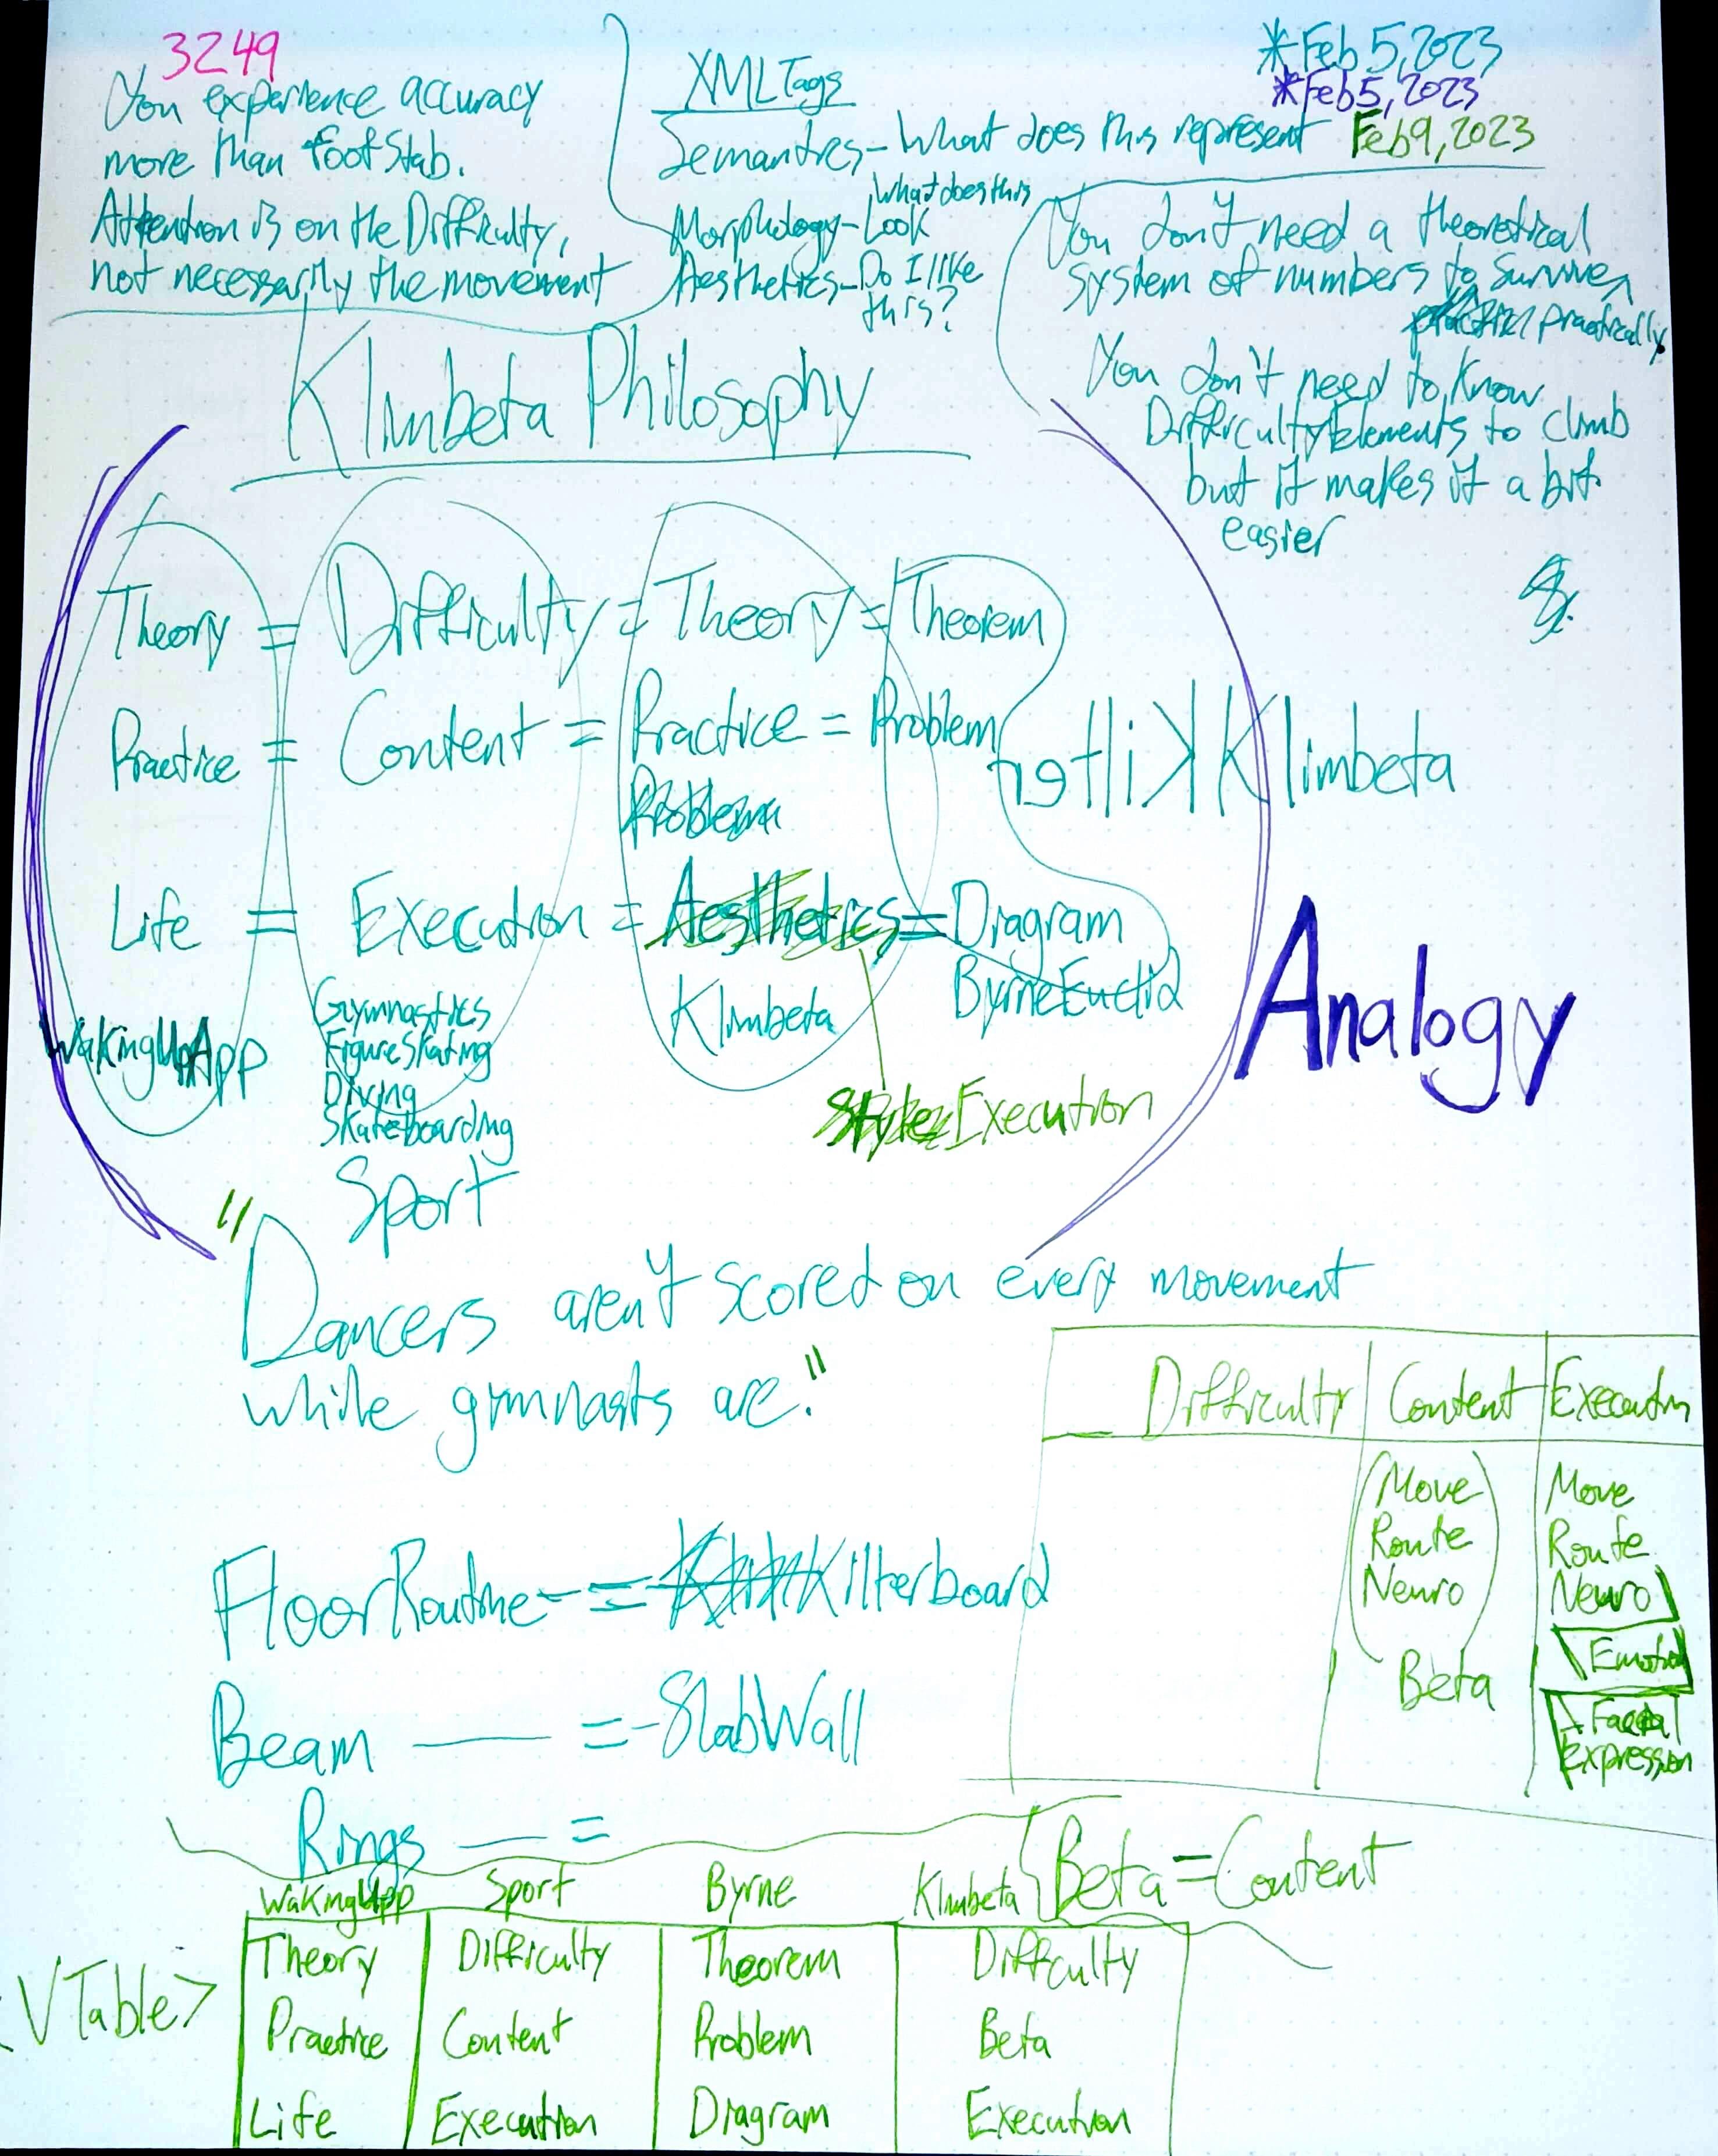 3249
You experience accuracy
more than foot stab.
Attention is on the Difficulty,
not necessarily the movement
XML Tags
Semantics - What does this represent
Morphology - What does this
Look
Aesthetics - Do I like
this?
*Feb 5, 2023
*Feb 5, 2023
Feb 9, 2023
You don't need a theoretical
system of numbers to survive
practically.
You don't need to know
Difficulty Elements to climb
but it makes it a bit
easier
Klimbeta Philosophy
Theory = Difficulty = Theory = Theorem
Practice = Content = Practice = Problem
Problem
Kilter Klimbeta
Life = Execution = Aesthetics = Diagram
Klimbeta
Byrne Euclid
WakingUpApp
Gymnastics
FigureSkating
Diving
Skateboarding
Sport
Style Execution
Analogy
"Dancers aren't scored on every movement
while gymnasts are."
FloorRoutine - = Kilterboard
Beam — = - SlabWall
Rings — =
Difficulty Content Execution
Move Move
Route Route
Neuro Neuro
Beta
Emotion
Facial
Expression
Beta = Content
WakingUpp Sport Byrne Klimbeta
<VTable>
Theory Difficulty Theorem Difficulty
Practice Content Problem Beta
Life Execution Diagram Execution